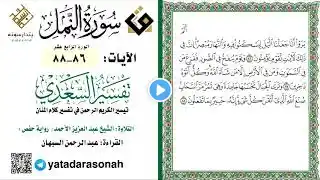 سورة النمل
الورد الرابع عشر
الآيات: ٨٦-٨٨
تفسير السعدي
تيسير الكريم الرحمن في تفسير كلام المنان
التلاوة: الشيخ عبد العزيز الأحمد، رواية حفص
القراءة: عبد الرحمن السبهان
yatadarasonah
يتدارسونه
ألم
يروا أنا جعلنا الليل ليسكنوا فيه والنهار مبصرا إن في
ذلك لآيات لقوم يؤمنون ٨٦ ويوم ينفخ في الصور ففزع من
في السموات ومن في الأرض إلا من شاء الله وكل أتوه
داخرين ٨٧ وترى الجبال تحسبها جامدة وهي تمر مر السحاب
صنع الله الذي أتقن كل شيء إنه خبير بما تفعلون ٨٨